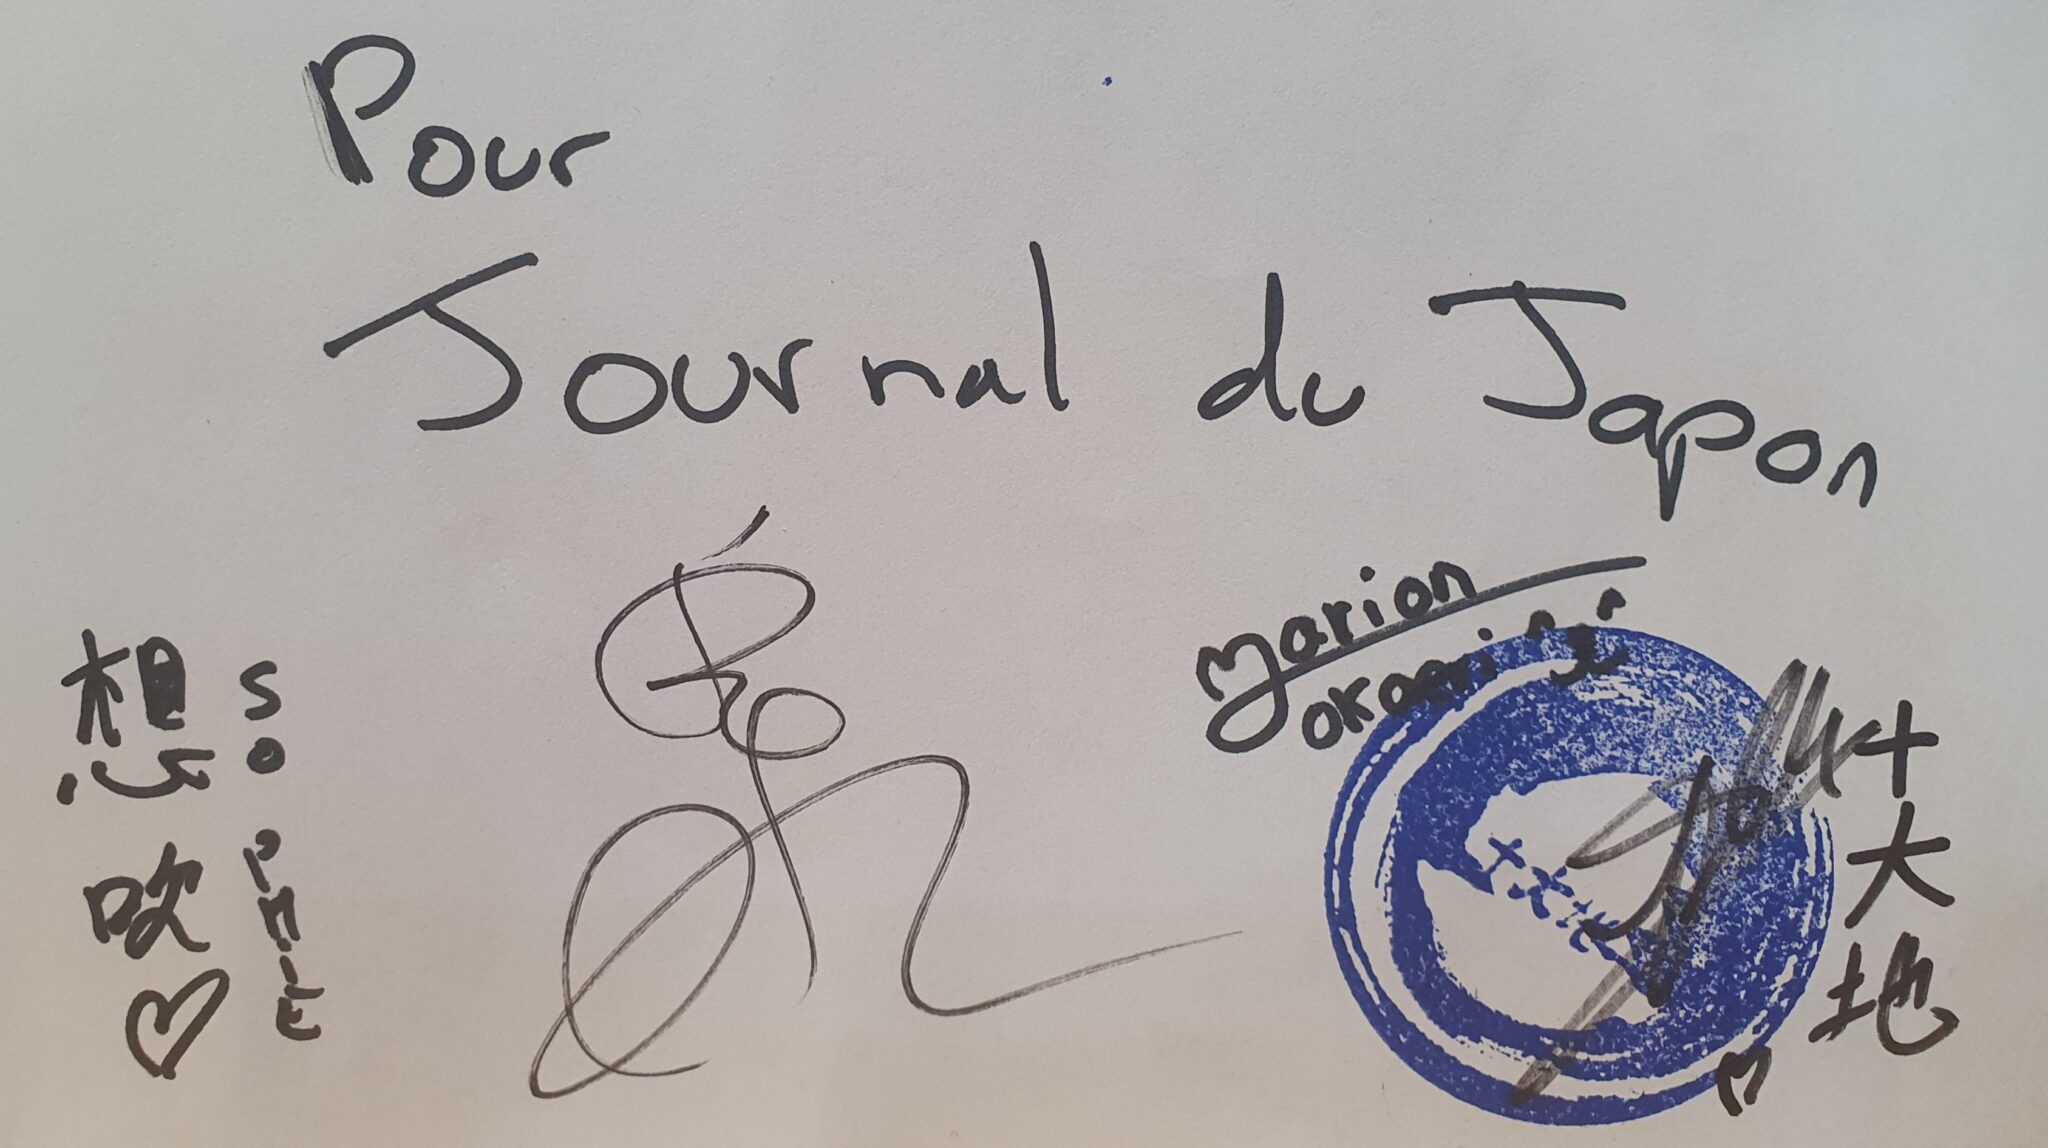 Pour
Journal du Japon
想吹
SOPHIE
Marion
okaeri
十大地
十大地